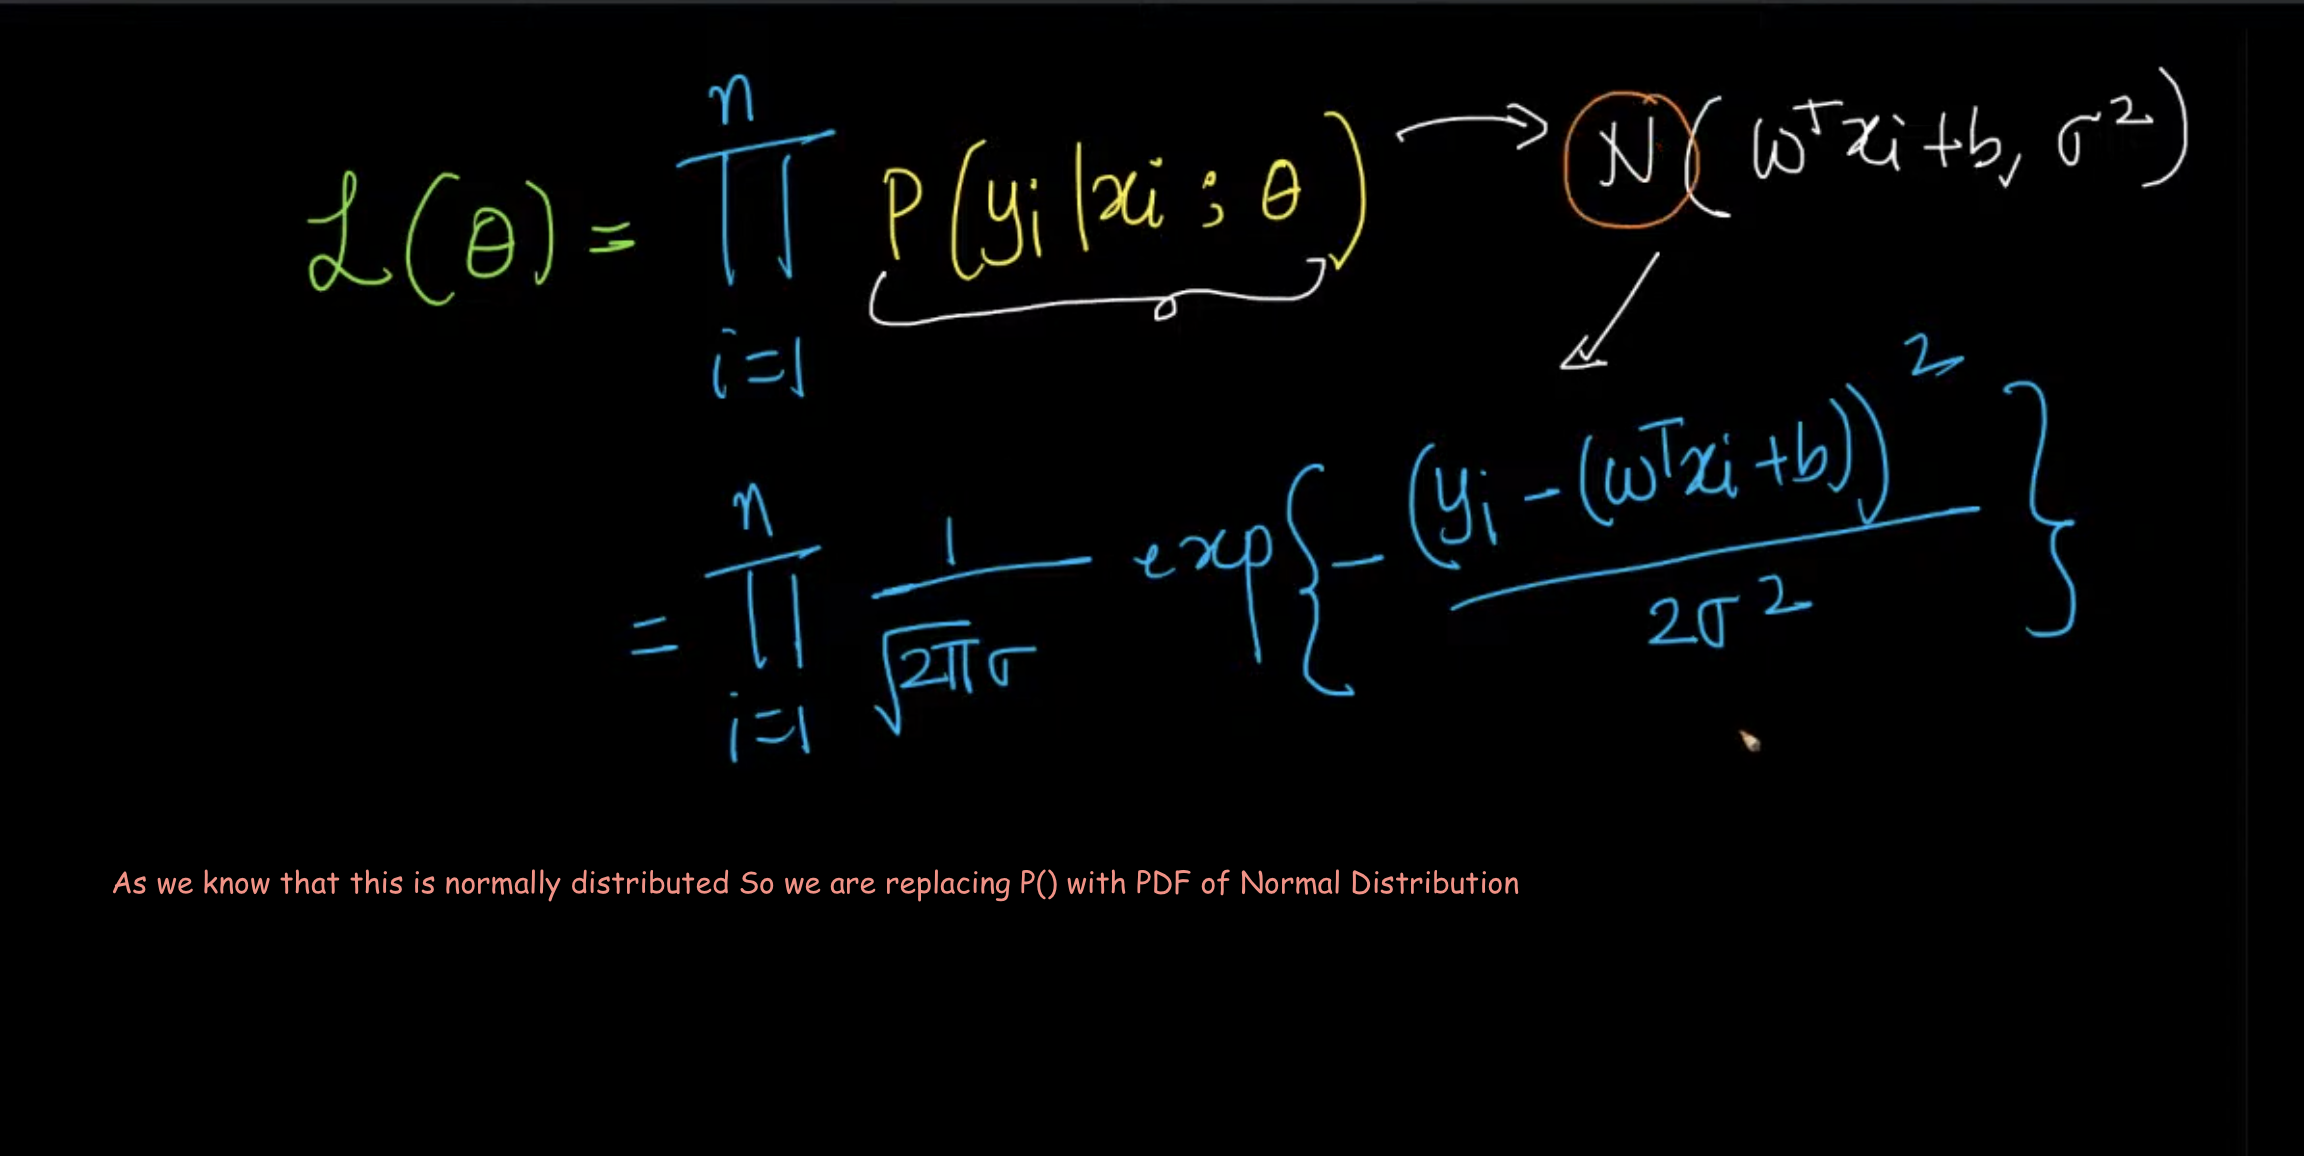 ℒ(θ) = ∏_{i=1}^{n} P(yi | xi ; θ) → N(ωᵀxi + b, σ²)
= ∏_{i=1}^{n} 1/(√2π σ) exp{ - (yi - (ωᵀxi + b))² / 2σ² }
As we know that this is normally distributed So we are replacing P() with PDF of Normal Distribution